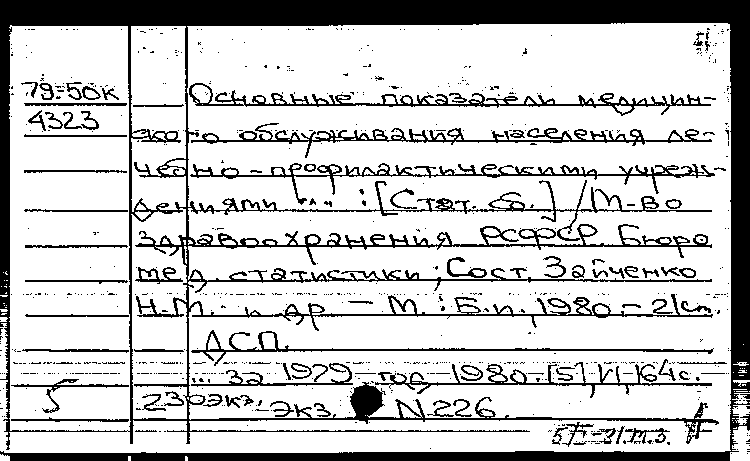 79-50к
4323
Основные показатели медицин-
ского обслуживания населения ле-
чебно-профилактическими учреж-
дениями "..." : [Стат. сб.] / М-во
здравоохранения РСФСР. Бюро
мед. статистики; Сост. Зайченко
Н.М. и др. - М.: Б.и., 1980. - 21см.
ДСП.
... за 1979 год. 1980. [5], VI, 164с.
5
230экз. экз. N 226.